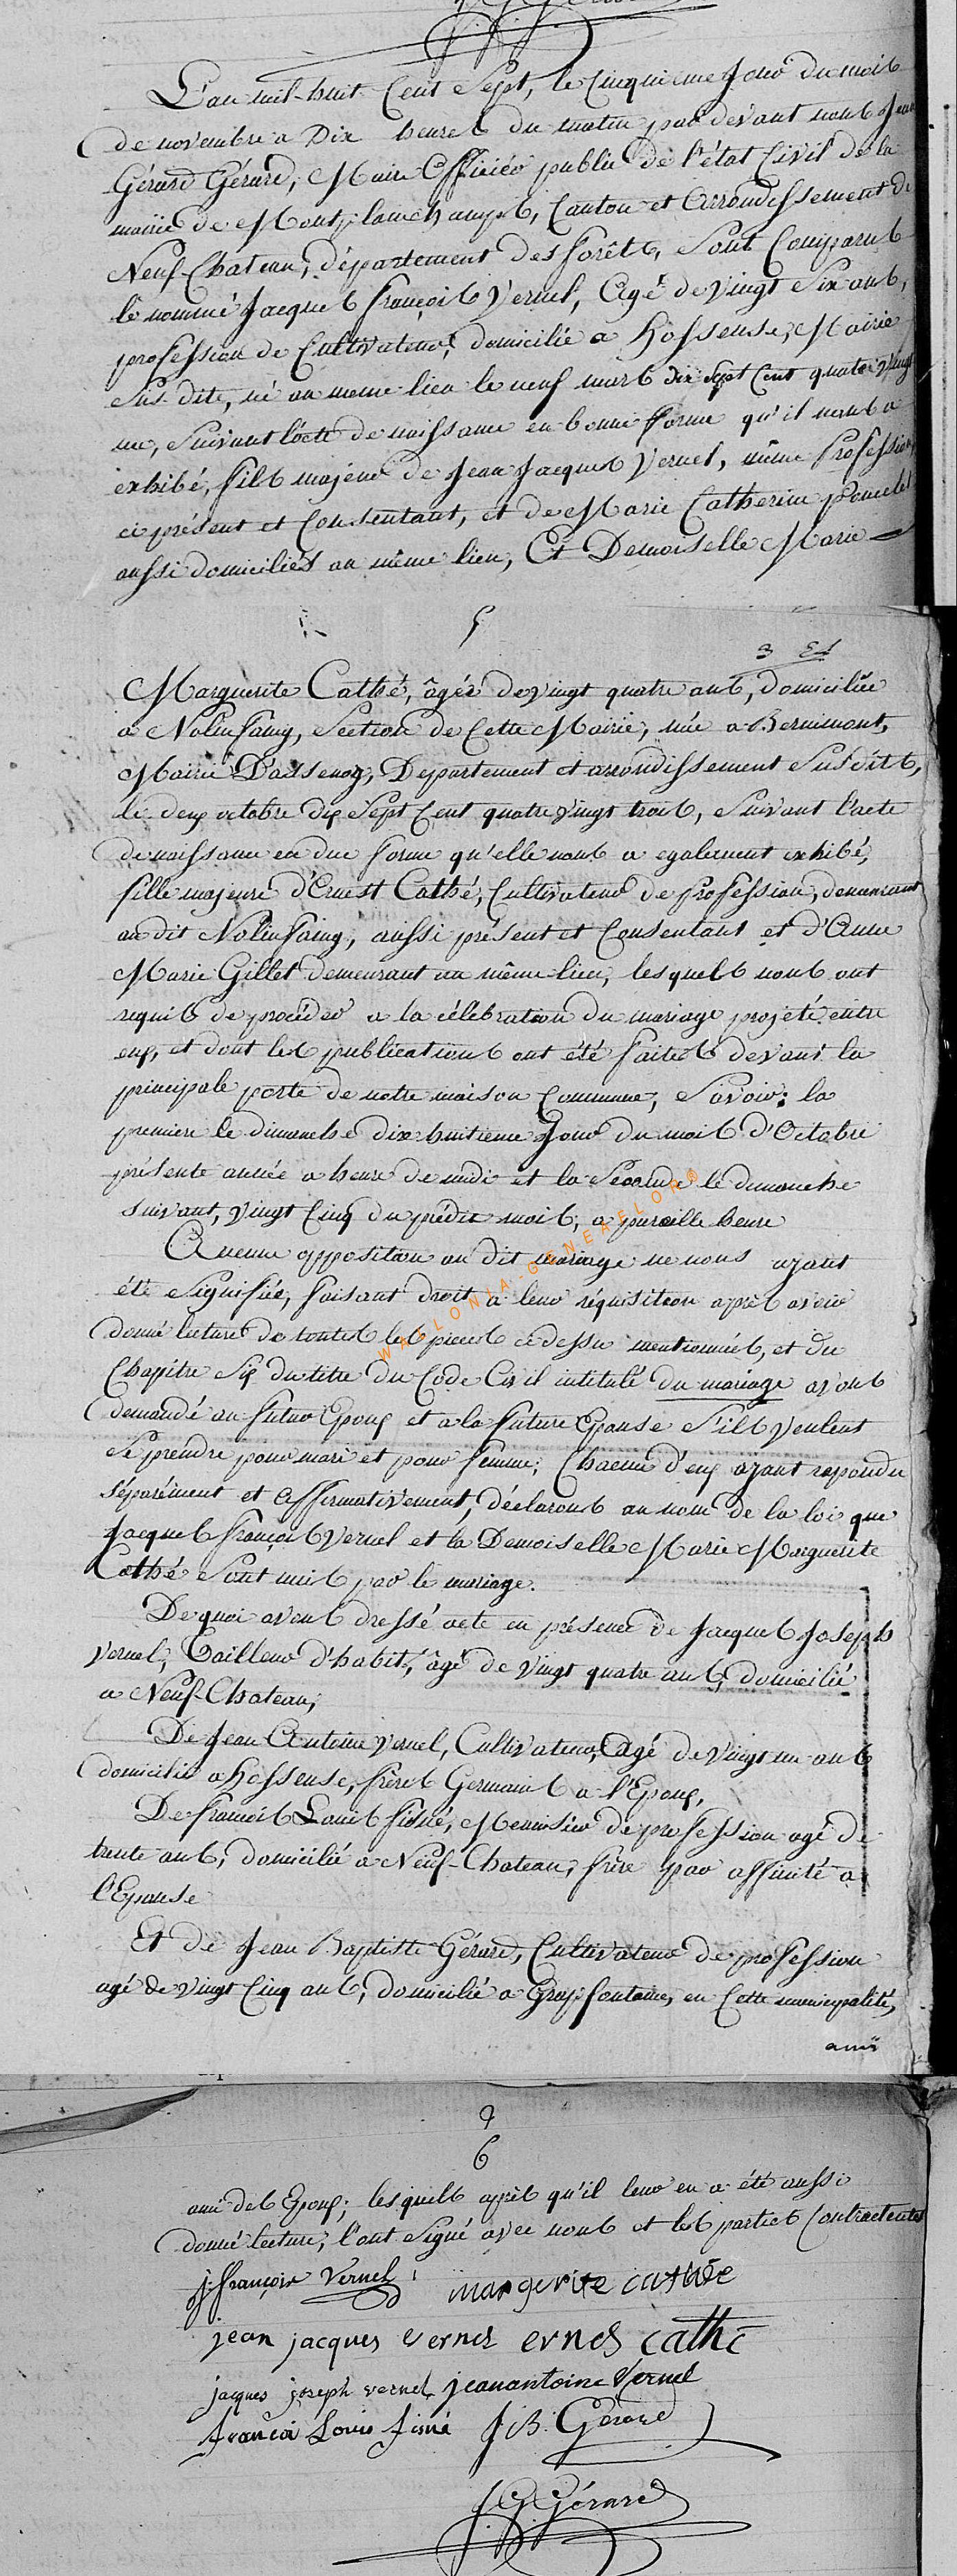 L'an mil-huit Cent Sept, le Cinquieme Jour du mois
de novembre a Dix heures du matin par devant nous Jean
Gérard Gérard, Maire Officier public de l'état Civil de la
mairie de Montplainchamps, Canton et Arrondissement de
Neuf-Chateau, département des forêts, Sont Comparus
le nommé Jacques françois Vernel, Agé de vingt Six ans,
profession de Cultivateur, domicilié a hosseuse, Mairie
Sus dite, né au meme lieu le neuf mars dix sept Cent quatre vingt
un, Suivant l'acte de naissance en bonne forme qu'il nous a
exhibé, fils majeur de Jean Jacques Vernel, même Profession
ci présent et Consentant, et de Marie Catherine poncelet
aussi domiciliés au même lieu, Et Demoiselle Marie
5
Marguerite Cathé, âgée de vingt quatre ans, domiciliée
a Nolinfaing, Section de Cette Mairie, née a Bernimont,
Mairie D'assenoy, Departement et arrondissement Susdits,
le deux octobre dix Sept Cent quatre vingt trois, Suivant l'acte
de naissance en due forme qu'elle nous a egalement exhibé,
fille majeure d'Ernest Cathé, Cultivateur de profession, demeurant
au dit Nolinfaing, aussi présent et Consentant et d'Anne
Marie Gillet demeurant au même lieu, lesquels nous ont
requis de procéder a la célébration du mariage projeté entre
eux, et dont les publications ont été faites devant la
principale porte de notre maison Commune, Savoir: la
premiere le dimanche dix-huitieme Jour du mois d'Octobre
présente année a heure de midi et la Seconde le dimanche
suivant, vingt Cinq du prédit mois, a pareille heure
Aucune opposition au dit mariage ne nous ayant
été Signifiée, faisant droit a leur réquisition après avoir
donné lecture de toutes les pieces ci dessu mentionnées, et du
Chapitre Six du titre du Code Civil intitulé du mariage avons
demandé au futur Epoux et a la future Epouse S'ils veulent
Se prendre pour mari et pour femme; Chacun d'eux ayant repondu
séparément et affirmativement, déclarons au nom de la loi que
Jacques françois Vernel et la Demoiselle Marie Marguerite
Cathé Sont unis par le mariage.
De quoi avons dressé acte en présence de Jacques Joseph
Vernel, Tailleur d'habit, âgé de vingt quatre ans, domicilié
a Neuf-Chateau,
De Jean Antoine Vernel, Cultivateur, Agé de vingt un ans
domicilié a hosseuse, frères Germains a l'Epoux,
De françois Louis fisné, Menuisier de profession agé de
trente ans, domicilié a Neuf-Chateau, frère par affinité a
l'Epouse
Et de Jean Baptiste Gérard, Cultivateur de profession
agé de vingt Cinq ans, domicilié a Grapfontaine, en Cette municipalité,
ami
6
ami des Epoux; lesquels après qu'il leur en a été aussi
donné lecture, l'ont Signé avec nous et les parties Contractantes
j françoix Vernel margerite cathée
jean jacques vernel ernes cathé
jacques joseph vernel jean antoine Vernel
françoi Louis fisné J B. Gérard
J G Gérard
WALLONIA-GENEAELOR®